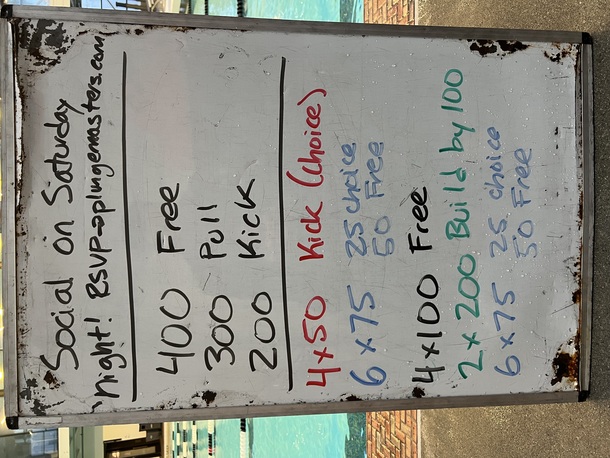 Social on Saturday
night! RSVP→plungemasters.com
400 Free
300 Pull
200 Kick
4x50 Kick (Choice)
6x75 25 choice
50 Free
4x100 Free
2x200 Build by 100
6x75 25 choice
50 Free